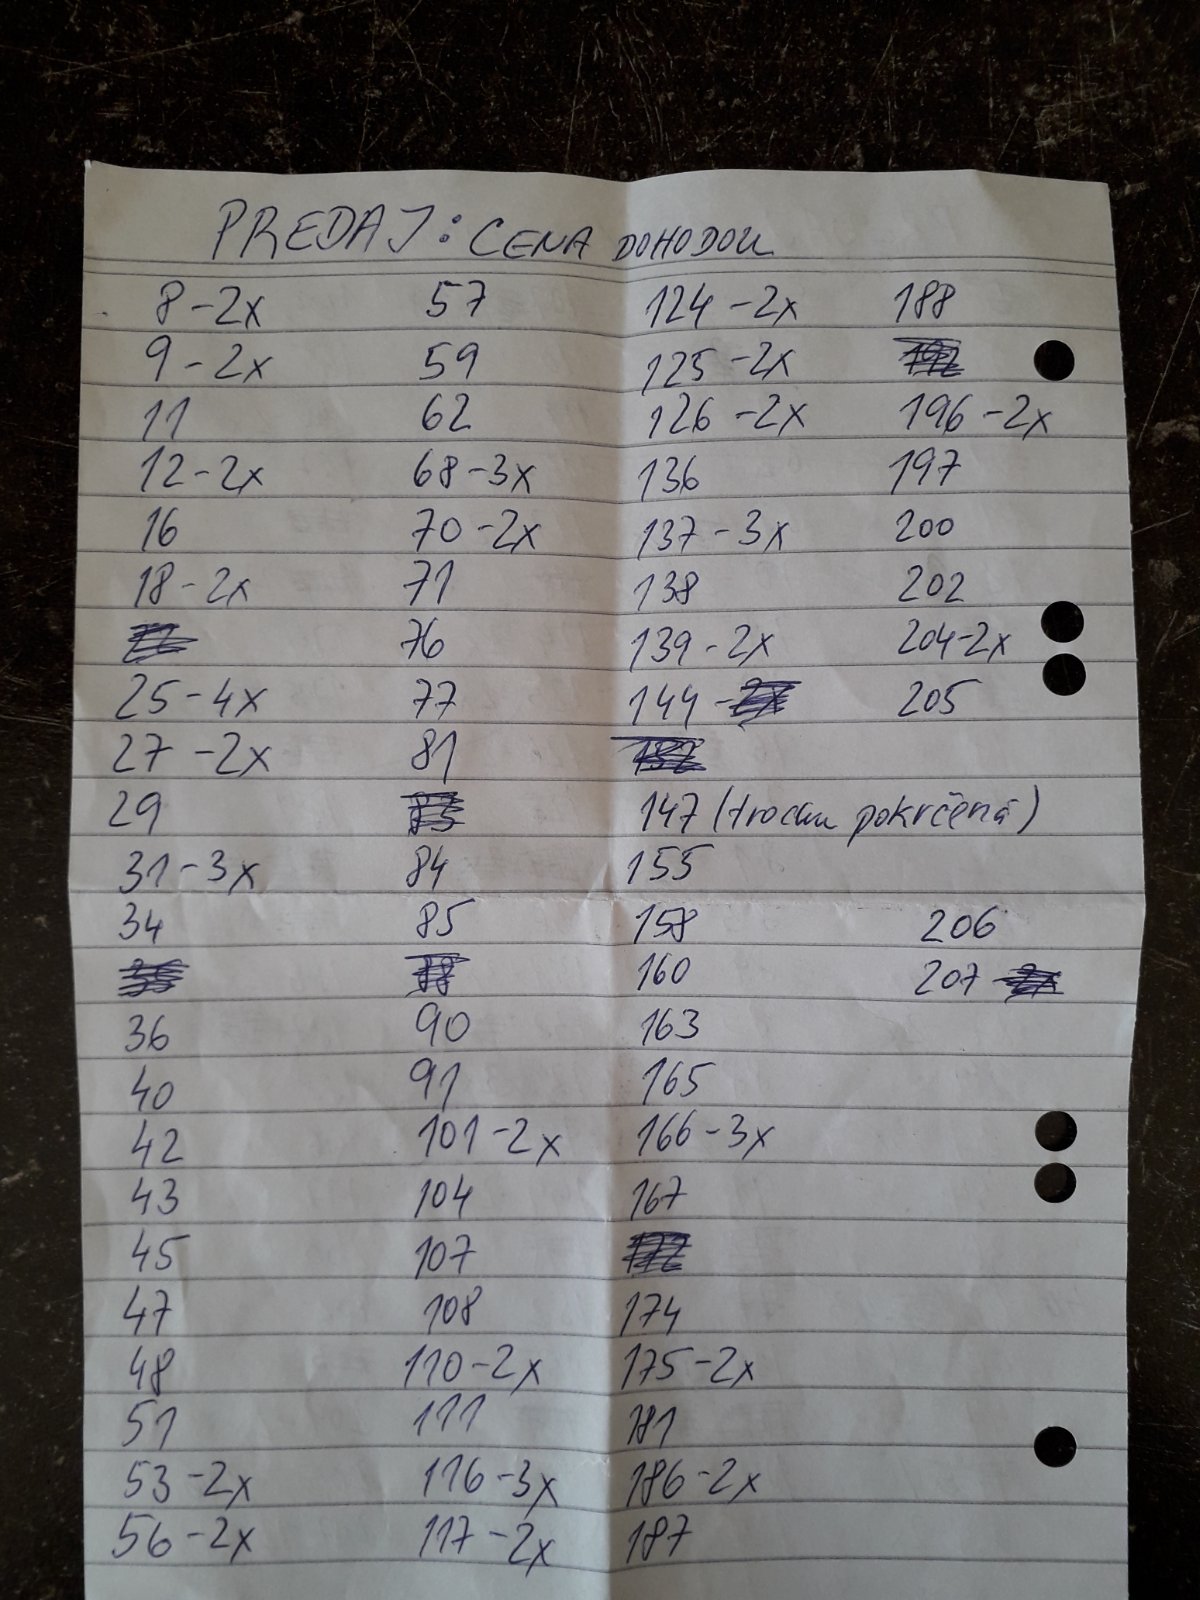 PREDAJ: CENA DOHODOU
8 - 2x 57 124 - 2x 188
9 - 2x 59 125 - 2x
11 62 126 - 2x 196 - 2x
12 - 2x 68 - 3x 136 197
16 70 - 2x 137 - 3x 200
18 - 2x 71 138 202
76 139 - 2x 204 - 2x
25 - 4x 77 144 - 205
27 - 2x 81
29 147 (trochu pokrčená)
31 - 3x 84 155
34 85 158 206
160 207
36 90 163
40 91 165
42 101 - 2x 166 - 3x
43 104 167
45 107
47 108 174
48 110 - 2x 175 - 2x
51 111 181
53 - 2x 116 - 3x 186 - 2x
56 - 2x 117 - 2x 187